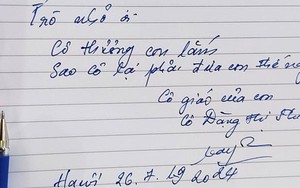 Trò nhỏ ơi
Cô thương con lắm
Sao cô lại phải đưa con thế
Cô giáo của con
Cô Đặng
Hanôi 26.7.2024